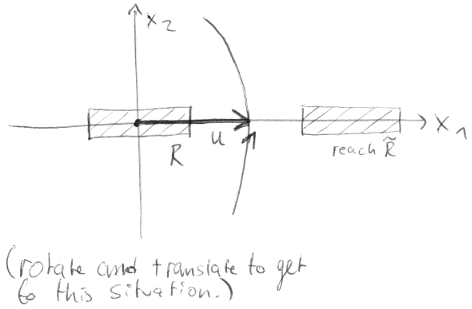 x₂
x₁
u
R
reach R̃
(rotate and translate to get
to this situation.)